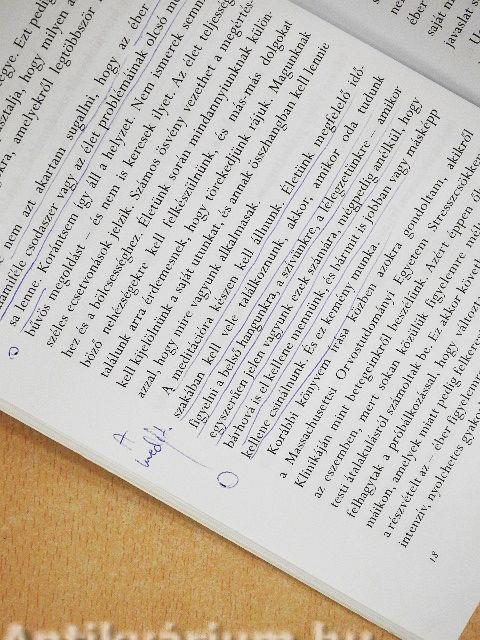 egye. Ezt pedig
sztalja, hogy milyen
okra, amelyekről legtöbbször
nem azt akartam sugallni, hogy az éber
amiféle csodaszer vagy az élet problémáinak olcsó
sa lenne. Korántsem így áll a helyzet. Nem ismerek semmi
bűvös megoldást – és nem is keresek ilyet. Az élet teljességé
széles ecsetvonások jelzik. Számos ösvény vezethet a megértés-
hez és a bölcsességhez. Életünk során mindannyiunknak külön-
böző nehézségekre kell felkészülnünk, és más-más dolgokat
találunk arra érdemesnek, hogy törekedjünk rájuk. Magunknak
kell kijelölnünk a saját utunkat, és annak összhangban kell lennie
azzal, hogy mire vagyunk alkalmasak.
A meditációra készen kell állnunk. Életünk megfelelő idő-
szakában kell vele találkoznunk, akkor, amikor oda tudunk
figyelni a belső hangunkra, a szívünkre, a lélegzetünkre – amikor
egyszerűen jelen vagyunk ezek számára, mégpedig anélkül, hogy
bálhová is el kellene mennünk, és bármit is jobban vagy másképp
kellene csinálnunk. És ez kemény munka.
Korábbi könyvem írása közben azokra gondoltam, akikről
a Massachusettsi Orvostudományi Egyetem Stresszcsökkent
Klinikáján mint betegeinkről beszélünk. Azért éppen ő
az eszemben, mert sokan közülük figyelemre mél
testi átalakulásról számoltak be. Ez akkor követk
felhagytak a próbálkozással, hogy változt
máikon, amelyek miatt pedig felkeres
a részvételt az – éber figyelemre
intenzív, nyolchetes gyako
18
éber
saját
javadat
A
Antikvárium.hu